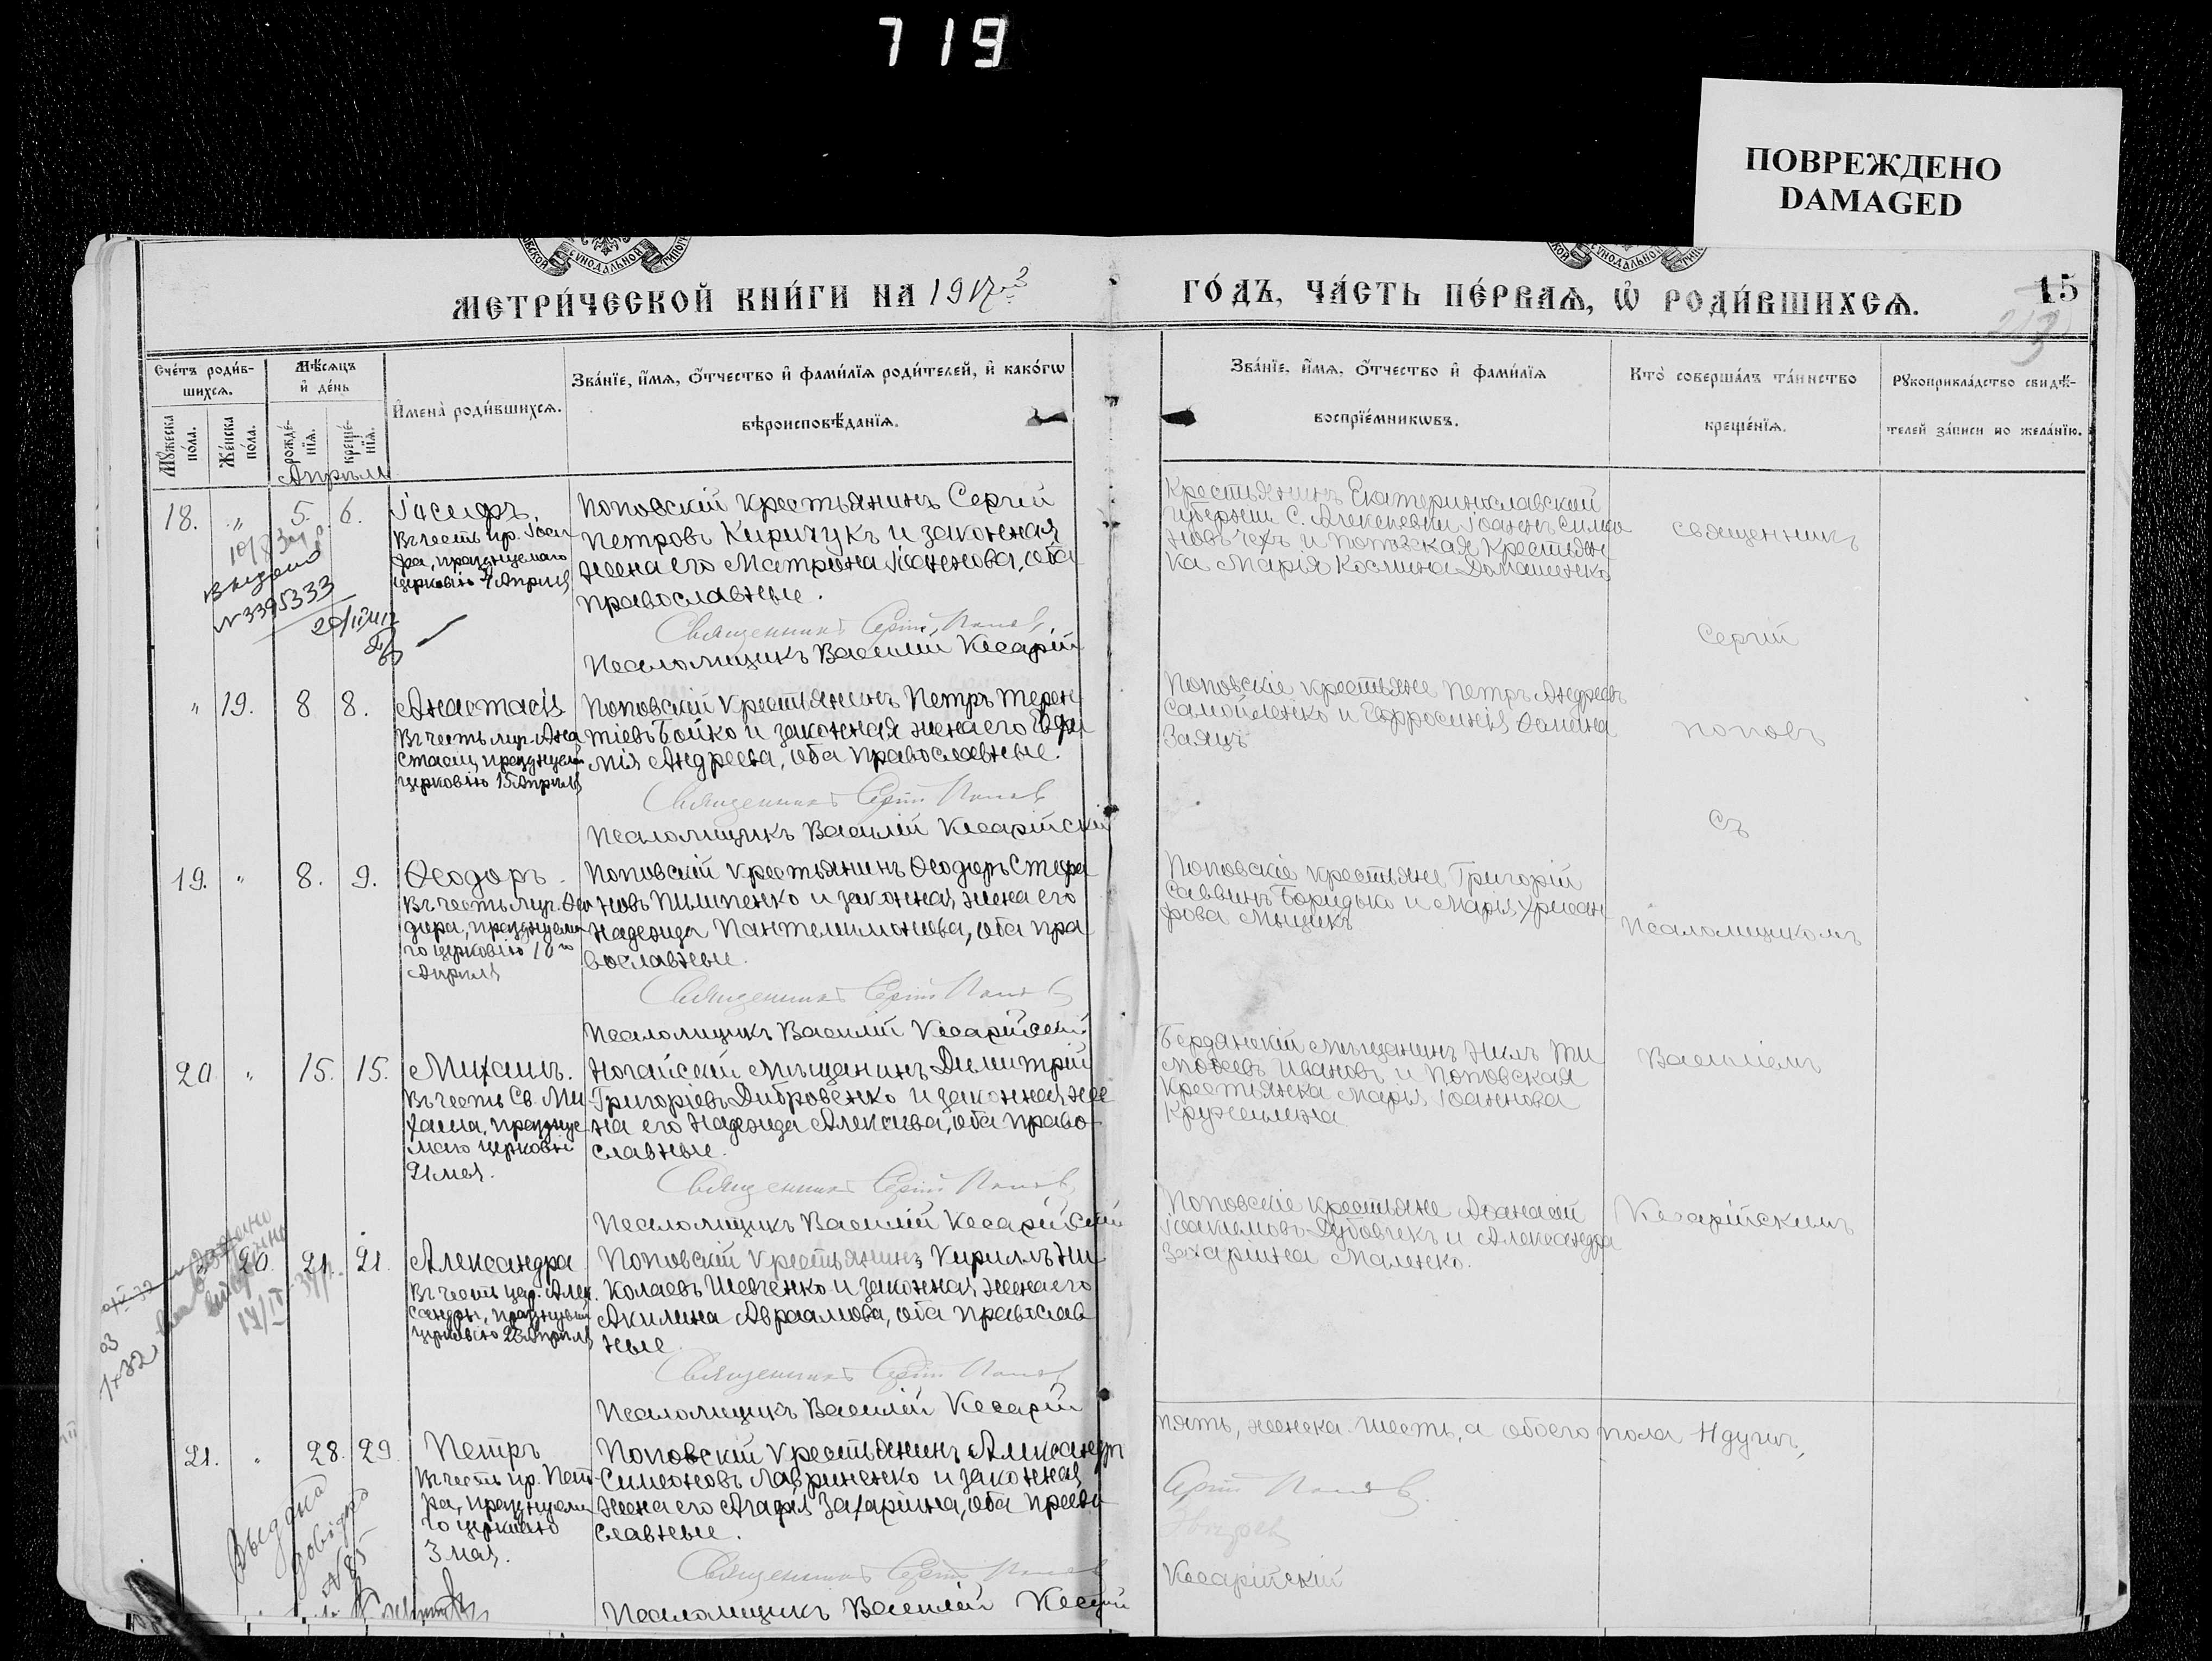 719
ПОВРЕЖДЕНО
DAMAGED
МЕТРИ́ЧЕСКОЙ КНИ́ГИ НА 1917й
ГО́ДЪ, ЧА́СТЬ ПЕ́РВАѦ, Ѡ҆ РОДИ́ВШИХСѦ.
15
Сче́тъ роди́в-
шихсѧ.
Мѣ́сѧцъ
и҆ де́нь
Мꙋ́жеска по́ла.
Же́нска по́ла.
рожде́-нїѧ.
креще́-нїѧ.
И҆мена̀ роди́вшихсѧ.
Зва́нїе, и҆́мѧ, ѻ҆́тчество и҆ фами́лїѧ роди́телей, и҆ како́гѡ
вѣроисповѣ́данїѧ.
Зва́нїе, и҆́мѧ, ѻ҆́тчество и҆ фами́лїѧ
воспрїе́мникѡвъ.
Кто̀ соверша́лъ та́инство
креще́нїѧ.
Рꙋкоприкла́дство свидѣ́-
телей за́писи по жела́нїю.
Апрель
18. " 5. 6. Іосифъ.
Въ честь пр. Іоси
фа, празднуемаго
церковію 4 Апрѣля
Поповскій крестьянинъ Сергій
Петровъ Киричукъ и законная
жена его Матрона Іоаннова, оба
православные.
Священникъ Сергій Поповъ
Псаломщикъ Василій Кесарій
Крестьянинъ Екатеринославской
губерніи с. Алексеевки Іоаннъ Симео
новъ и Поповская крестьян
ка Марія Космина Домашенко
Священникъ
Сергій
Выдано
№3395333
" 19. 8 8. Анастасія
Въ честь муч. Ана
стасіи, празднуем
церковію 15 Апрѣля
Поповскій крестьянинъ Петръ Терен
тіевъ Бойко и законная жена его Евфи
мія Андреева, оба православные.
Священникъ Сергій Поповъ
Псаломщикъ Василій Кесарійскій
Поповскіе крестьяне Петръ Андреевъ
Самойленко и Евфросинія Ѳомина
Заяцъ
Поповъ
съ
19. " 8. 9. Ѳеодоръ.
Въ честь муч. Ѳео
дора, празднуема
го церковію 10го
Апрѣля
Поповскій крестьянинъ Ѳеодоръ Стефа
новъ Пилипенко и законная жена его
Надежда Пантелимонова, оба пра
вославные.
Священникъ Сергій Поповъ
Псаломщикъ Василій Кесарійскій
Поповскіе крестьяне Григорій
Саввинъ Боридько и Марія Хрисан
фова Мыцикъ
Псаломщикомъ
20. " 15. 15. Михаилъ.
Въ честь Св. Ми
хаила, празднуе
маго церковію
21 мая.
Ногайскій мѣщанинъ Димитрій
Григоріевъ Дибровенко и законная же
на его Надежда Алексіева, оба право-
славные.
Священникъ Сергій Поповъ
Псаломщикъ Василій Кесарійскій
Бердянскій мѣщанинъ Нилъ Ти
моѳеевъ Ивановъ и Поповская
крестьянка Марія Іоаннова
Кружилина
Василіемъ
20. 21. 21. Александра
Въ честь цар. Алек
сандры, празднуемой
церковію 23 Апрѣля
Поповскій крестьянинъ Кириллъ Ни
колаевъ Шевченко и законная жена его
Акилина Авраамова, оба православ
ные
Священникъ Сергій Поповъ
Псаломщикъ Василій Кесарій
Поповскіе крестьяне Аѳанасій
Іоакимовъ Дубовикъ и Александра
Захаріина Маленко.
Кесарійскимъ
21. " 28. 29. Петръ
Въ честь пр. Пет-
ра, празднуема
го церковію
3 мая.
Поповскій крестьянинъ Александръ
Симеоновъ Лавриненко и законная
жена его Агафія Захаріина, оба право
славные.
Священникъ Сергій Поповъ
Псаломщикъ Василій Кесарій
Выдана
довідка
№ 85
пять, женска шесть, а обоего пола
Сергій Поповъ
Кесарійскій